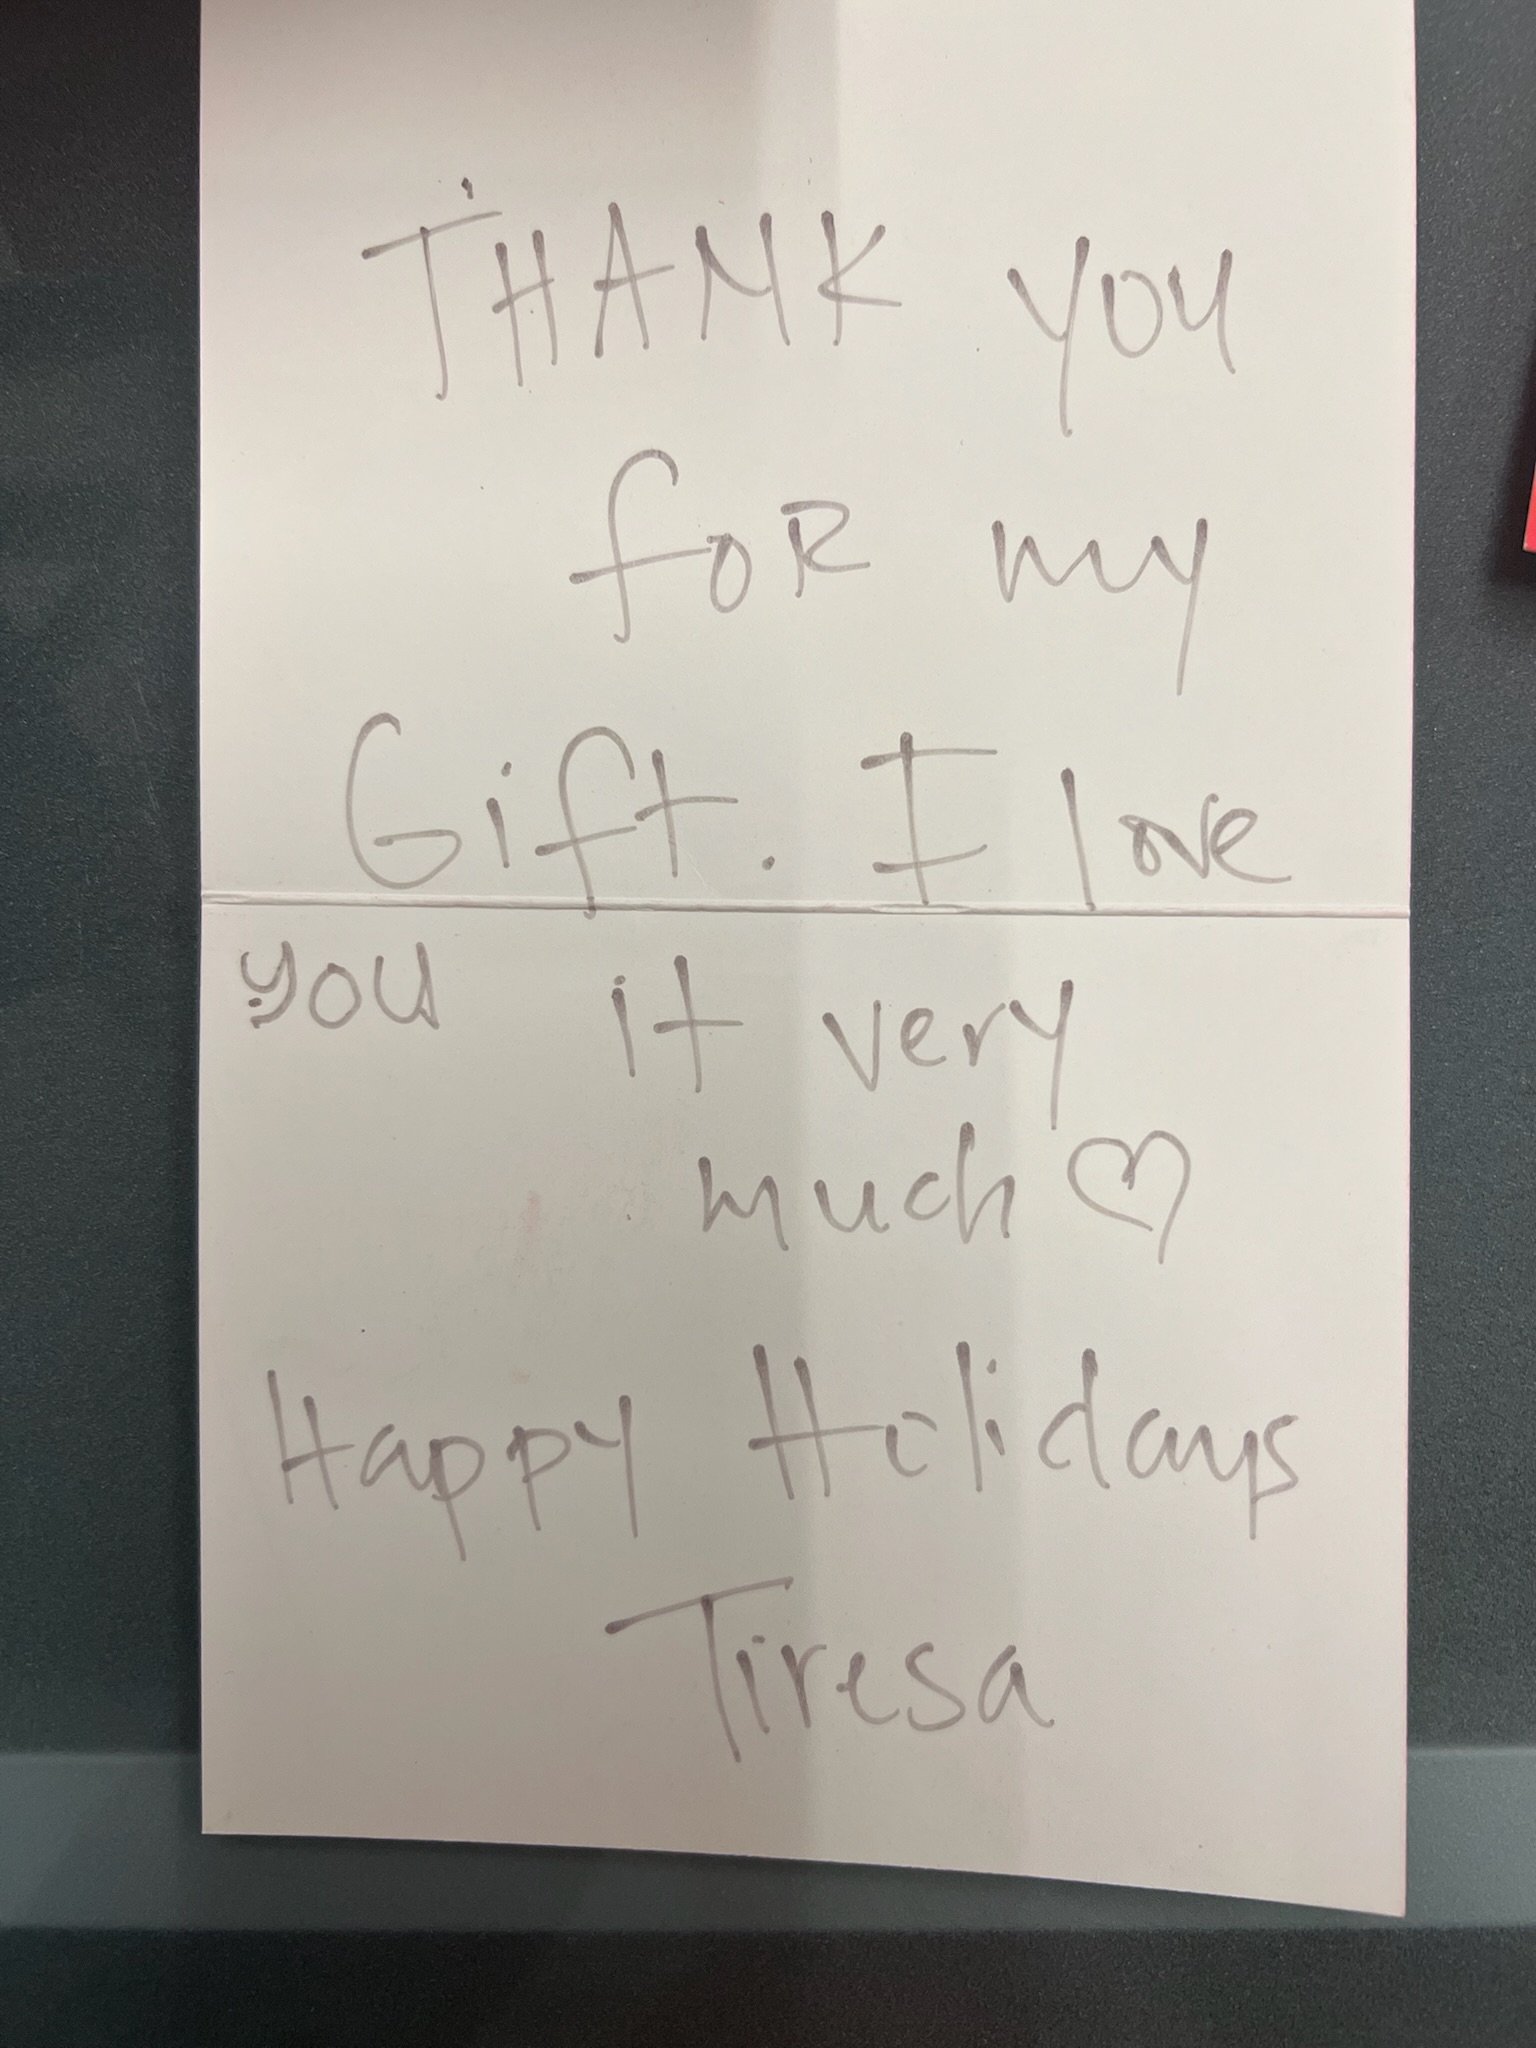 THANK YOU
foR my
Gift. I love
you it very
much ♡
Happy Holidays
Tiresa